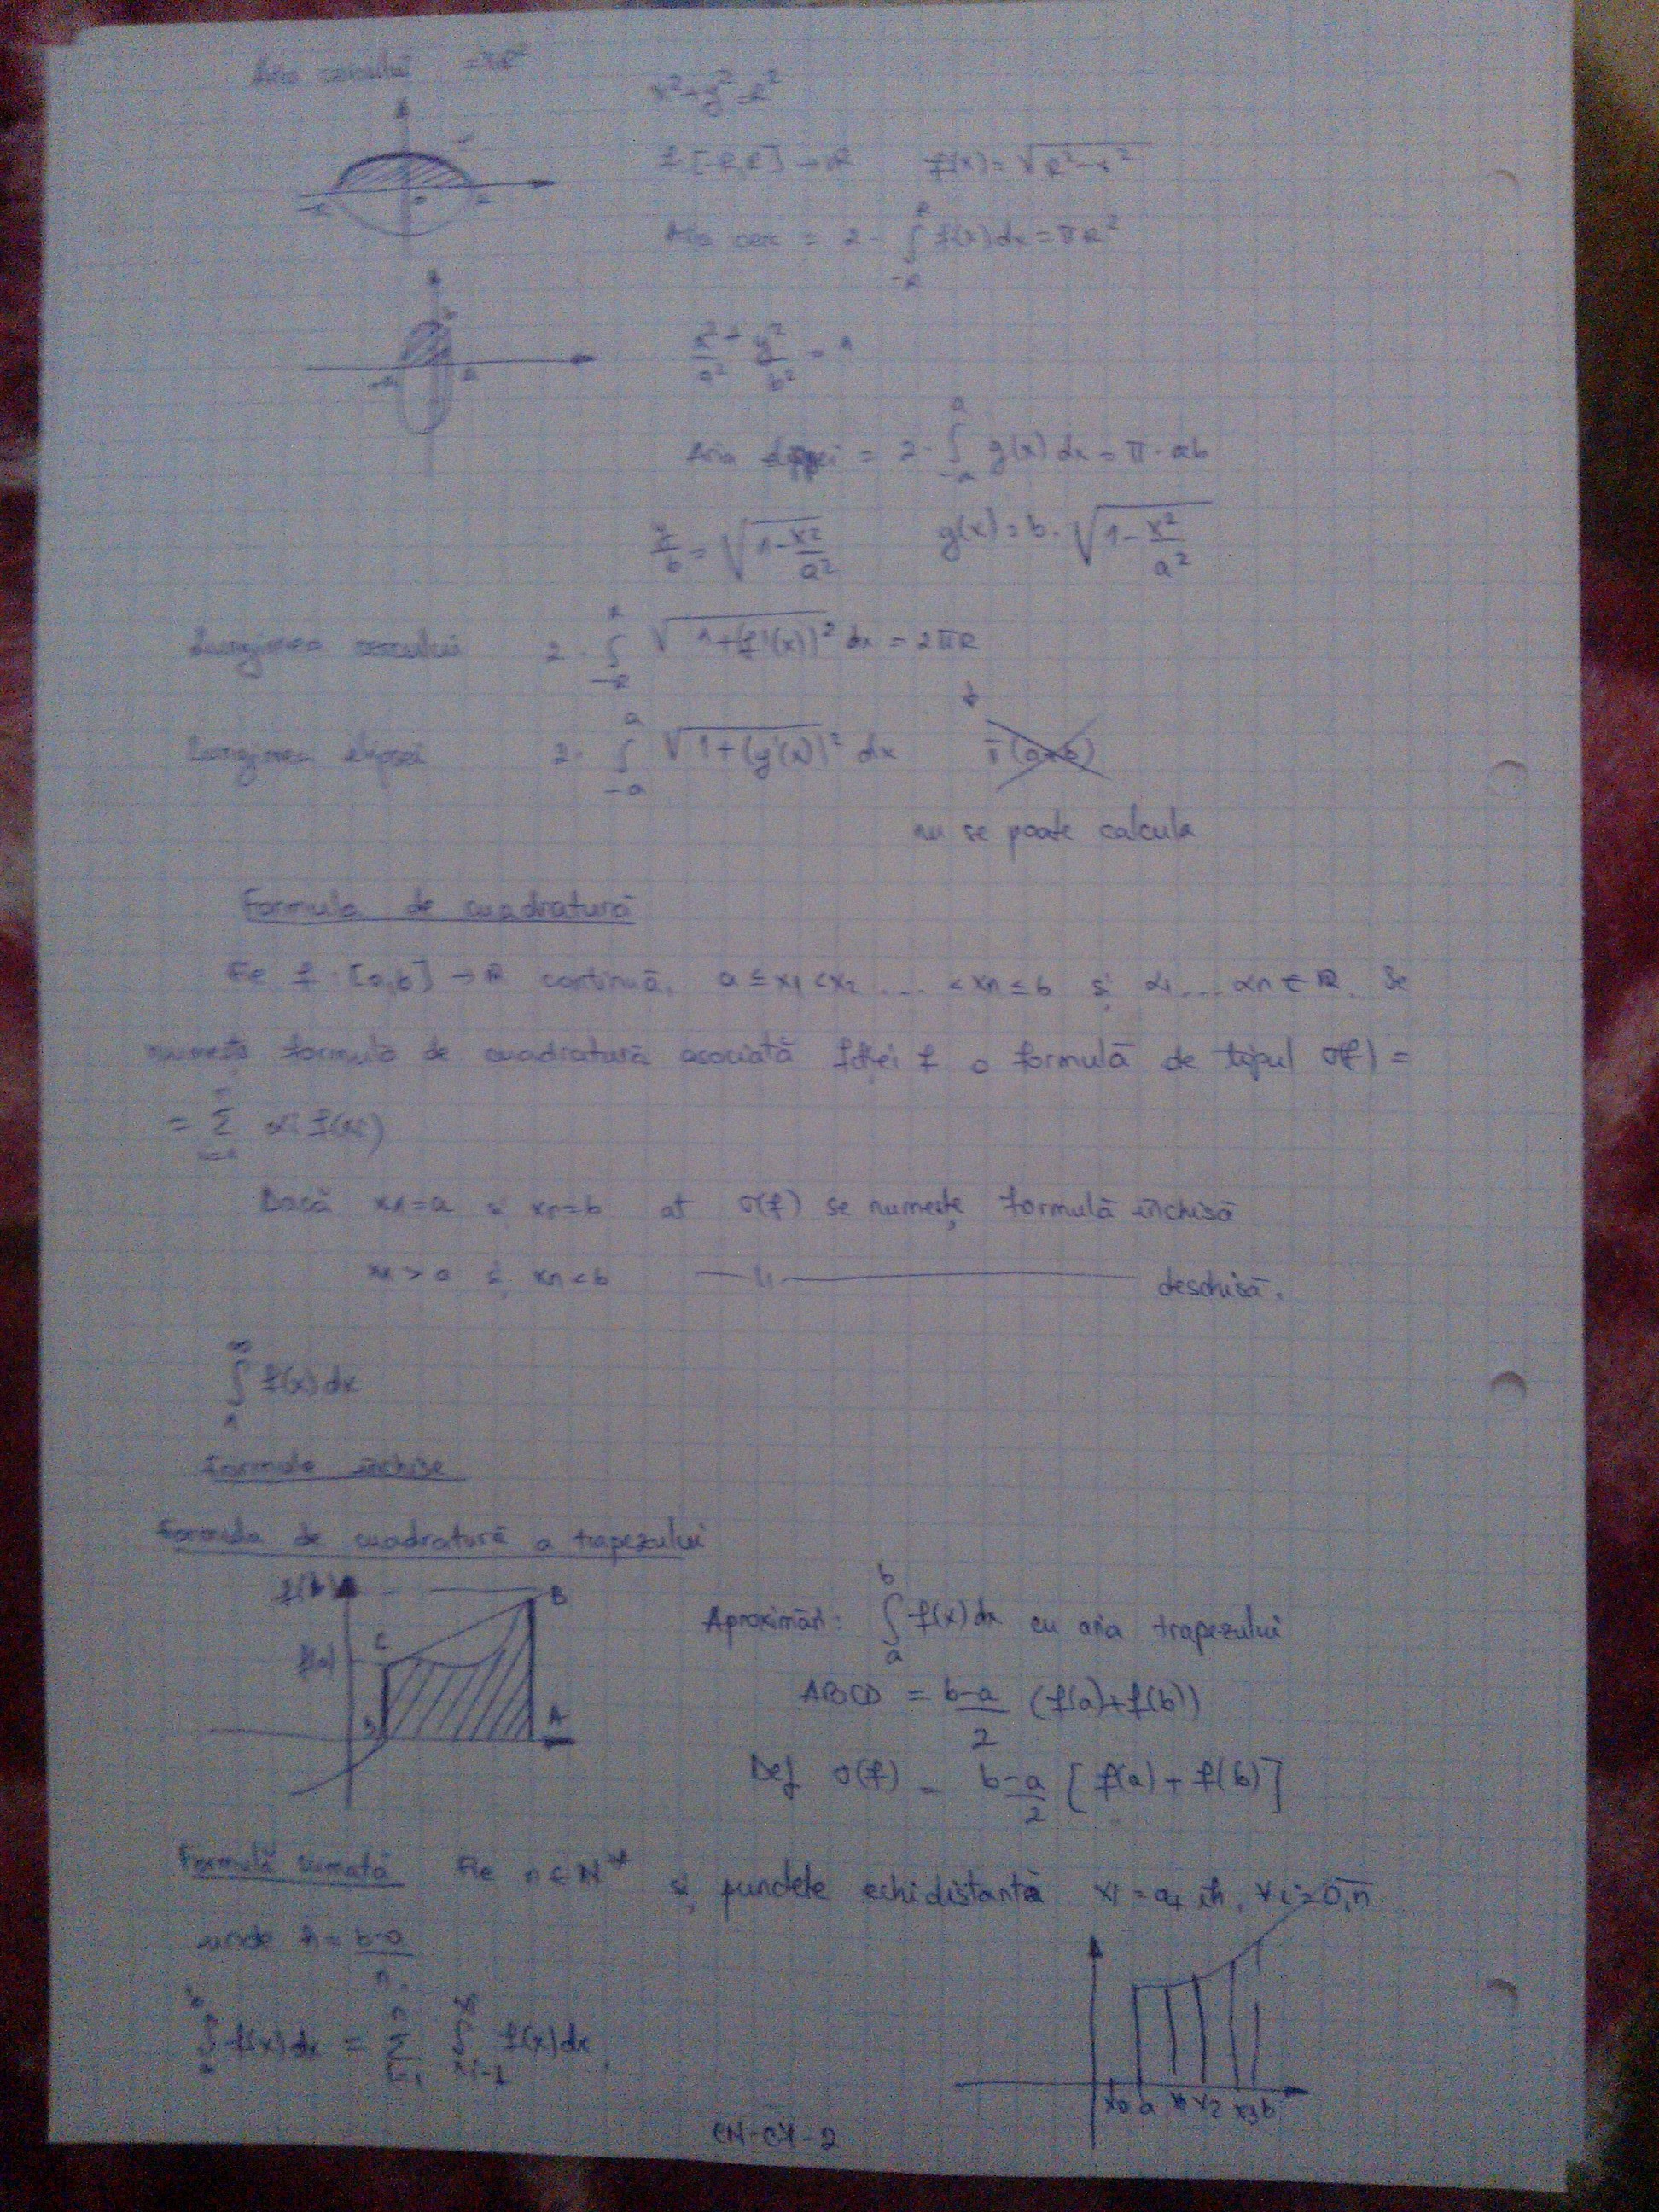 Aria cercului = πR²
x²+y²=R²
f:[-R,R]→R f(x)=√(R²-x²)
Aria cerc = 2·∫_{-R}^{R} f(x)dx = πR²
x²/a² + y²/b² = 1
Aria elipsei = 2·∫_{-a}^{a} g(x)dx = π·ab
y/b = √(1-x²/a²) g(x)=b·√(1-x²/a²)
Lungimea cercului 2·∫_{-R}^{R} √(1+(f'(x))²) dx = 2πR
Lungimea elipsei 2·∫_{-a}^{a} √(1+(g'(x))²) dx π(a+b)
nu se poate calcula
Formula de cuadratură
Fie f:[a,b]→R continuă, a≤x1<x2...<xn≤b și α1...αn∈R. Se
numește formulă de cuadratură asociată fcției f o formulă de tipul σ(f)=
= Σ_{i=1}^{n} αi f(xi)
Dacă x1=a și xn=b at σ(f) se numește formulă închisă
x1>a și xn<b —"— deschisă.
∫ f(x)dx
Formule închise
Formula de cuadratură a trapezului
f(b) B
C
f(a)
D A
Aproximăm: ∫_{a}^{b} f(x)dx cu aria trapezului
ABCD = (b-a)/2 (f(a)+f(b))
Def σ(f) = (b-a)/2 [f(a)+f(b)]
Formulă sumată Fie n∈N* și punctele echidistante xi=a+ih, ∀i=0,n
unde h=(b-a)/n.
∫_{a}^{b} f(x)dx = Σ_{i=1}^{n} ∫_{xi-1}^{xi} f(x)dx.
x0 a x1 x2 x3 b
CN-C7-2